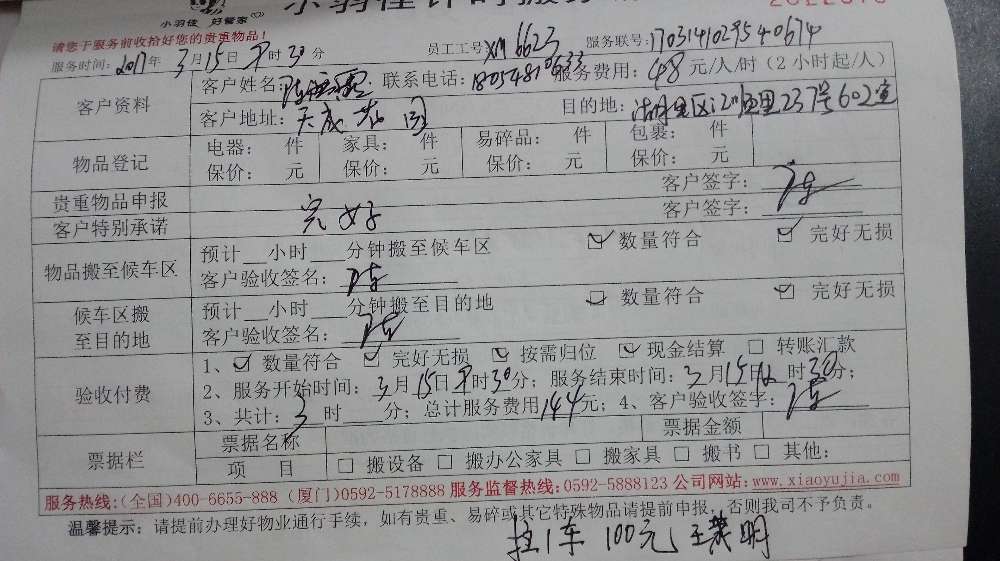 小羽佳 好管家
请您于服务前收拾好您的贵重物品!
员工工号 XM6623 服务联号:1703141029540674
服务时间: 2017年 3月15日 9时30分
客户资料
客户姓名: 陈 联系电话: 服务费用: 48元/人/时(2小时起/人)
客户地址: 天成花园 目的地: 湖里区 里237号602室
物品登记
电器: 件 家具: 件 易碎品: 件 包裹: 件
保价: 元 保价: 元 保价: 元 保价: 元
贵重物品申报 客户签字: 陈
客户特别承诺 完好 客户签字:
物品搬至候车区
预计__小时___分钟搬至候车区 ☑ 数量符合 ☑ 完好无损
客户验收签名: 陈
候车区搬至目的地
预计__小时___分钟搬至目的地 ☑ 数量符合 ☑ 完好无损
客户验收签名: 陈
验收付费
1、☑ 数量符合 ☑ 完好无损 ☑ 按需归位 ☑ 现金结算 □ 转账汇款
2、服务开始时间: 3月15日9时30分; 服务结束时间: 3月15日12时30分;
3、共计: 3时 分; 总计服务费用144元; 4、客户验收签字: 陈
票据栏
票据名称 票据金额
项 目 □ 搬设备 □ 搬办公家具 □ 搬家具 □ 搬书 □ 其他:
服务热线:(全国)400-6655-888 (厦门)0592-5178888 服务监督热线:0592-5888123 公司网站:www.xiaoyujia.com
温馨提示: 请提前办理好物业通行手续,如有贵重、易碎或其它特殊物品请提前申报,否则我司不予负责。
拉1车 100元 王 明